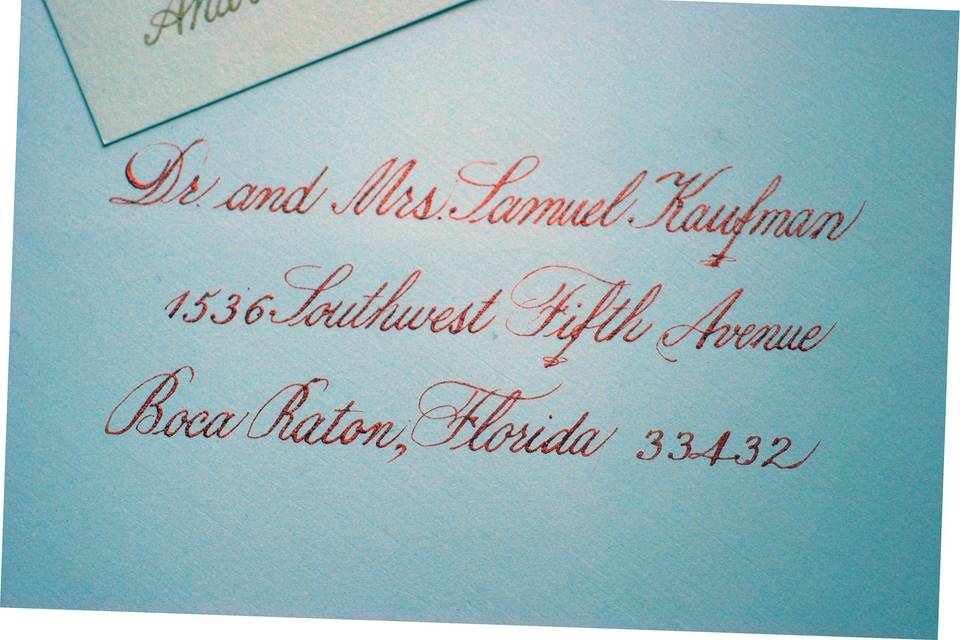 Dr. and Mrs. Samuel Kaufman
1536 Southwest Fifth Avenue
Boca Raton, Florida 33432